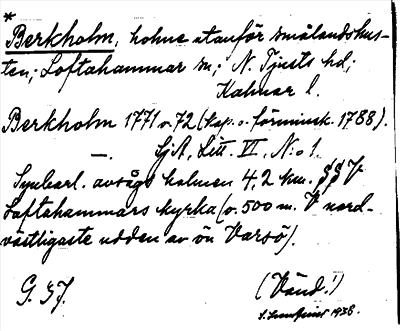 *
Berkholm, holme utanför smålandskus-
ten; Loftahammar sn; N. Tjusts hd;
Kalmar l.
Berkholm 1771 o. 72 (kop. o. förminsk. 1788).
—. SjA, Litt. VI, N:o 1.
Synbarl. avsågs holmen 4,2 km.
Loftahammars kyrka (o. 500 m. V nord-
västligaste udden av ön Varsö).
G. 37.
(Vänd!)
1938.